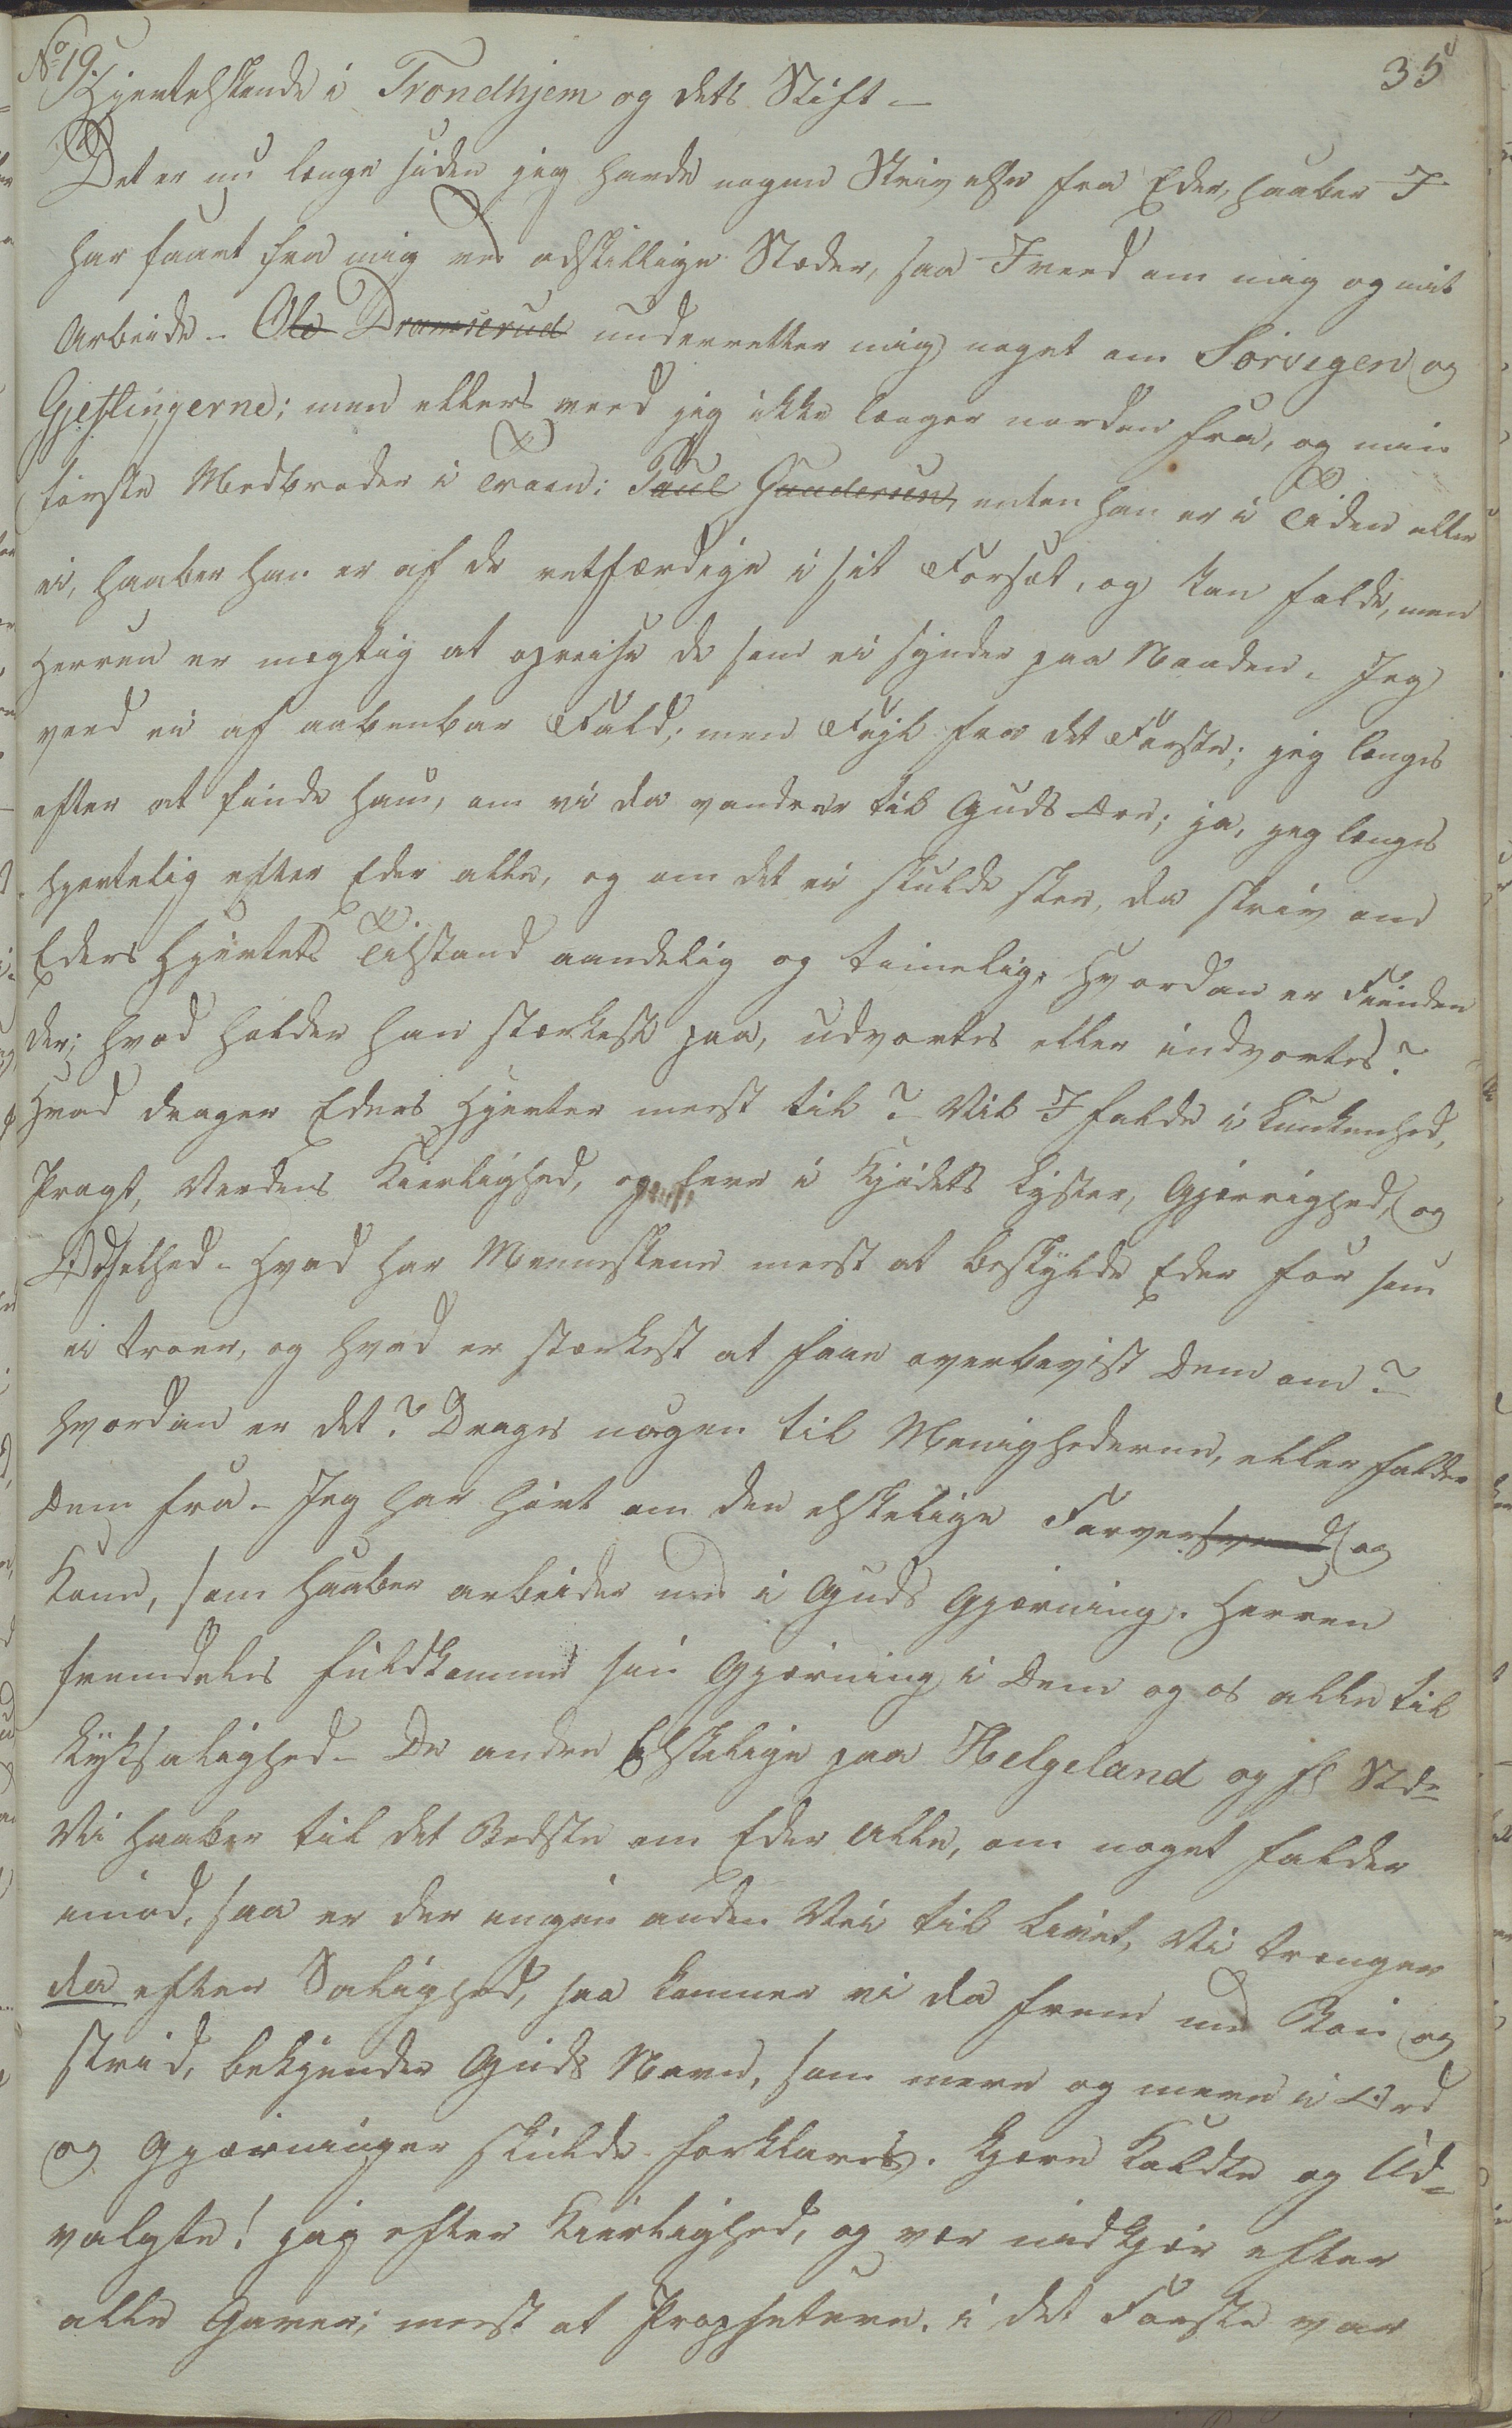 No 19.
35
Hjertelskende i Trondhjem og dets Stift –
Det er nu længe siden jeg havde nogen Skrivelse fra Eder, haaber I
har faaet fra mig ved adskillige Stæder, saa I veed om mig og mit
Arbeide. – Ole Dramserud underretter mig noget om Sörvegen og
Gjeslingerne; men ellers veed jeg ikke længer norden fra, og min
förste Medbroder i Troen: Paul Gundersen, enten han er i Tiden eller
ei, haaber han er af de retfærdige i sit Forsæt, og kan falde, men
Herren er mægtig at opreise de som ei synder paa Naaden. Jeg
veed ei af aabenbar Fald, men Fejl fra det Förste; jeg længes
efter at finde ham, om vi da vandrer til Guds Ære; ja, jeg længes
hjertelig efter Eder alle, og om det ei skulde skee, da skriv om
Eders Hjertets Tilstand aandelig og timelig. Hvordan er Fienden
der; hvad holder han stærkest paa, udvortes eller indvortes?
Hvad drager Eders Hjerter meest til? Vil I falde i Lunkenhed,
Pragt, Verdens Kierlighed, og leve i Kjödets Lyster, Gjerrighed, og
Ödselhed. Hvad har Menneskene meest at beskylde Eder for som
ei troer, og hvad er stærkest at faae overbevist Dem om?
Hvordan er det? Drages nogen til Menighederne, eller falder
Dem fra. – Jeg har hört om den elskelige Farversvend og
Kone, som haaber arbeider med i Guds Gjerning. Herren
fremdeles fuldkomme sin Gjerning i Dem og os alle til
Lyksalighed. – De andre Elskelige paa Helgeland og fl Std–
Vi haaber til det Bedste om Eder Alle, om noget falder
imod, saa er der ingen anden Vei til Livet, Vi trænger
da efter Salighed, saa kommer vi da frem med Bön og
Strid, bekjender Guds Navn, som mere og mere i Ord
og Gjerninger skulde forklares. Kjere Kaldte og Ud-
valgte! jag efter Kierlighed, og vær nidkjær efter
alle Gaver; meest at Prophetere. i det Förste var